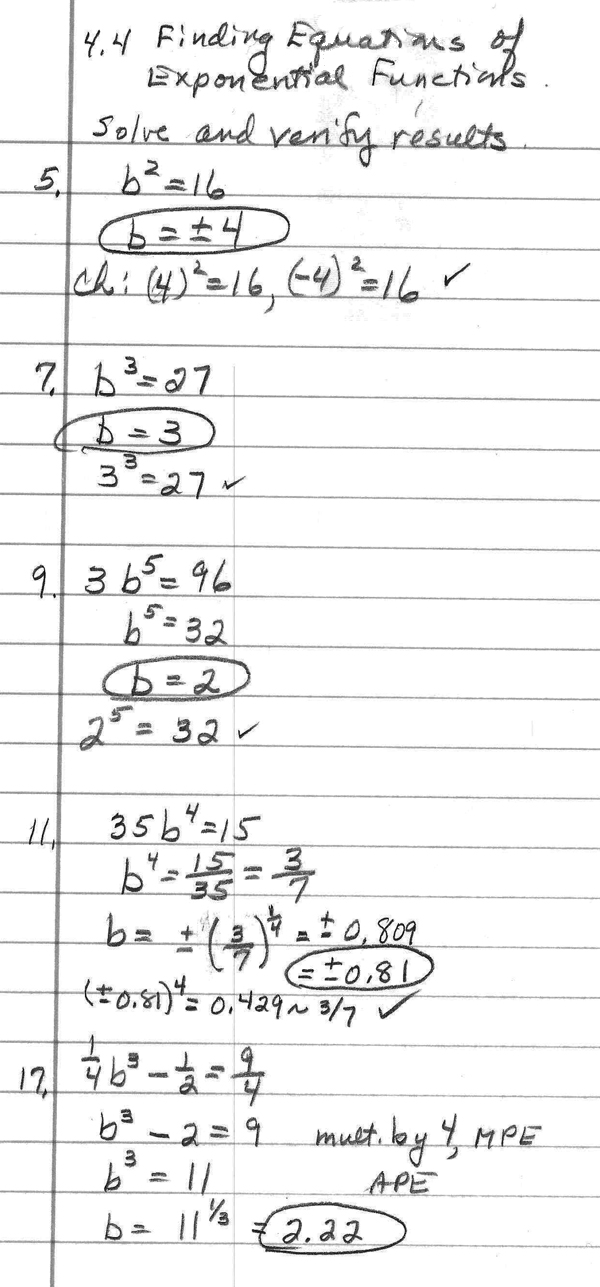 4.4 Finding Equations of
Exponential Functions.
Solve and verify results.
5. b² = 16
b = ±4
ch: (4)² = 16, (-4)² = 16 ✓
7. b³ = 27
b = 3
3³ = 27 ✓
9. 3b⁵ = 96
b⁵ = 32
b = 2
2⁵ = 32 ✓
11. 35b⁴ = 15
b⁴ = 15/35 = 3/7
b = ± (3/7)^1/4 = ± 0.809
= ±0.81
(±0.81)⁴ = 0.429 ~ 3/7 ✓
17. 1/4 b³ - 1/2 = 9/4
b³ - 2 = 9 mult. by 4, MPE
b³ = 11 APE
b = 11^1/3 = 2.22